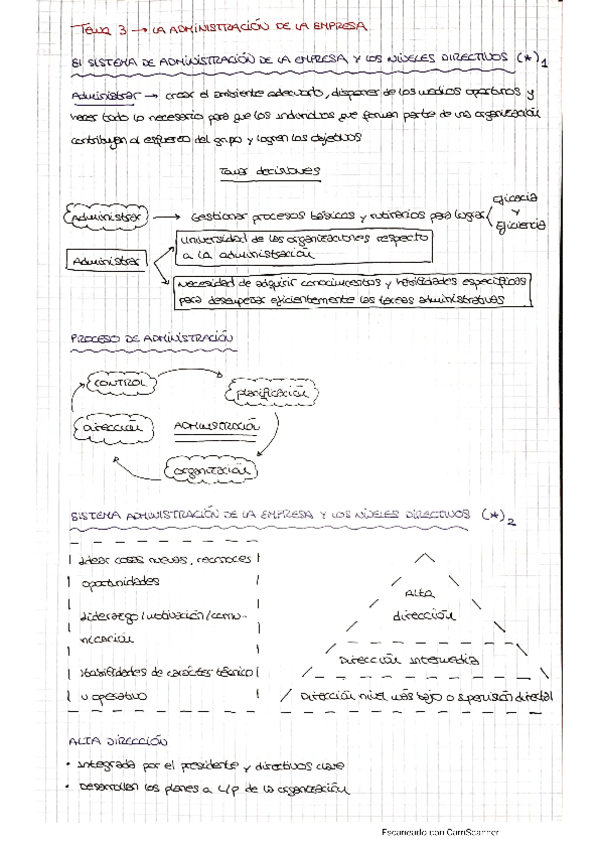 Tema 3 → LA ADMINISTRACIÓN DE LA EMPRESA
El SISTEMA DE ADMINISTRACIÓN DE LA EMPRESA Y LOS NIVELES DIRECTIVOS (*)1
Administrar → crear el ambiente adecuado, disponer de los medios oportunos y
hacer todo lo necesario para que los individuos que forman parte de una organización
contribuyan al esfuerzo del grupo y logren los objetivos
Tomar decisiones
Administrar → Gestionar procesos básicos y rutinarios para lograr eficacia y Eficiencia
Administrar
universidad de las organizaciones respecto
a LA administración
Necesidad de adquirir conocimientos y habilidades específicas
para desempeñar eficientemente las tareas administrativas
PROCESO DE ADMINISTRACIÓN
CONTROL
planificación
dirección
ADMINISTRACIÓN
organización
SISTEMA ADMINISTRACIÓN DE LA EMPRESA Y LOS NIVELES DIRECTIVOS (*)2
Idear cosas nuevas, reconoces
oportunidades
Liderazgo/motivación/comu-
nicación
Habilidades de carácter técnico
u operativo
ALTA
dirección
Dirección intermedia
Dirección nivel más bajo o supervisión directa
ALTA DIRECCIÓN
• Integrada por el presidente y directivos clave
• Desarrollan los planes a L/p de la organización
Escaneado con CamScanner